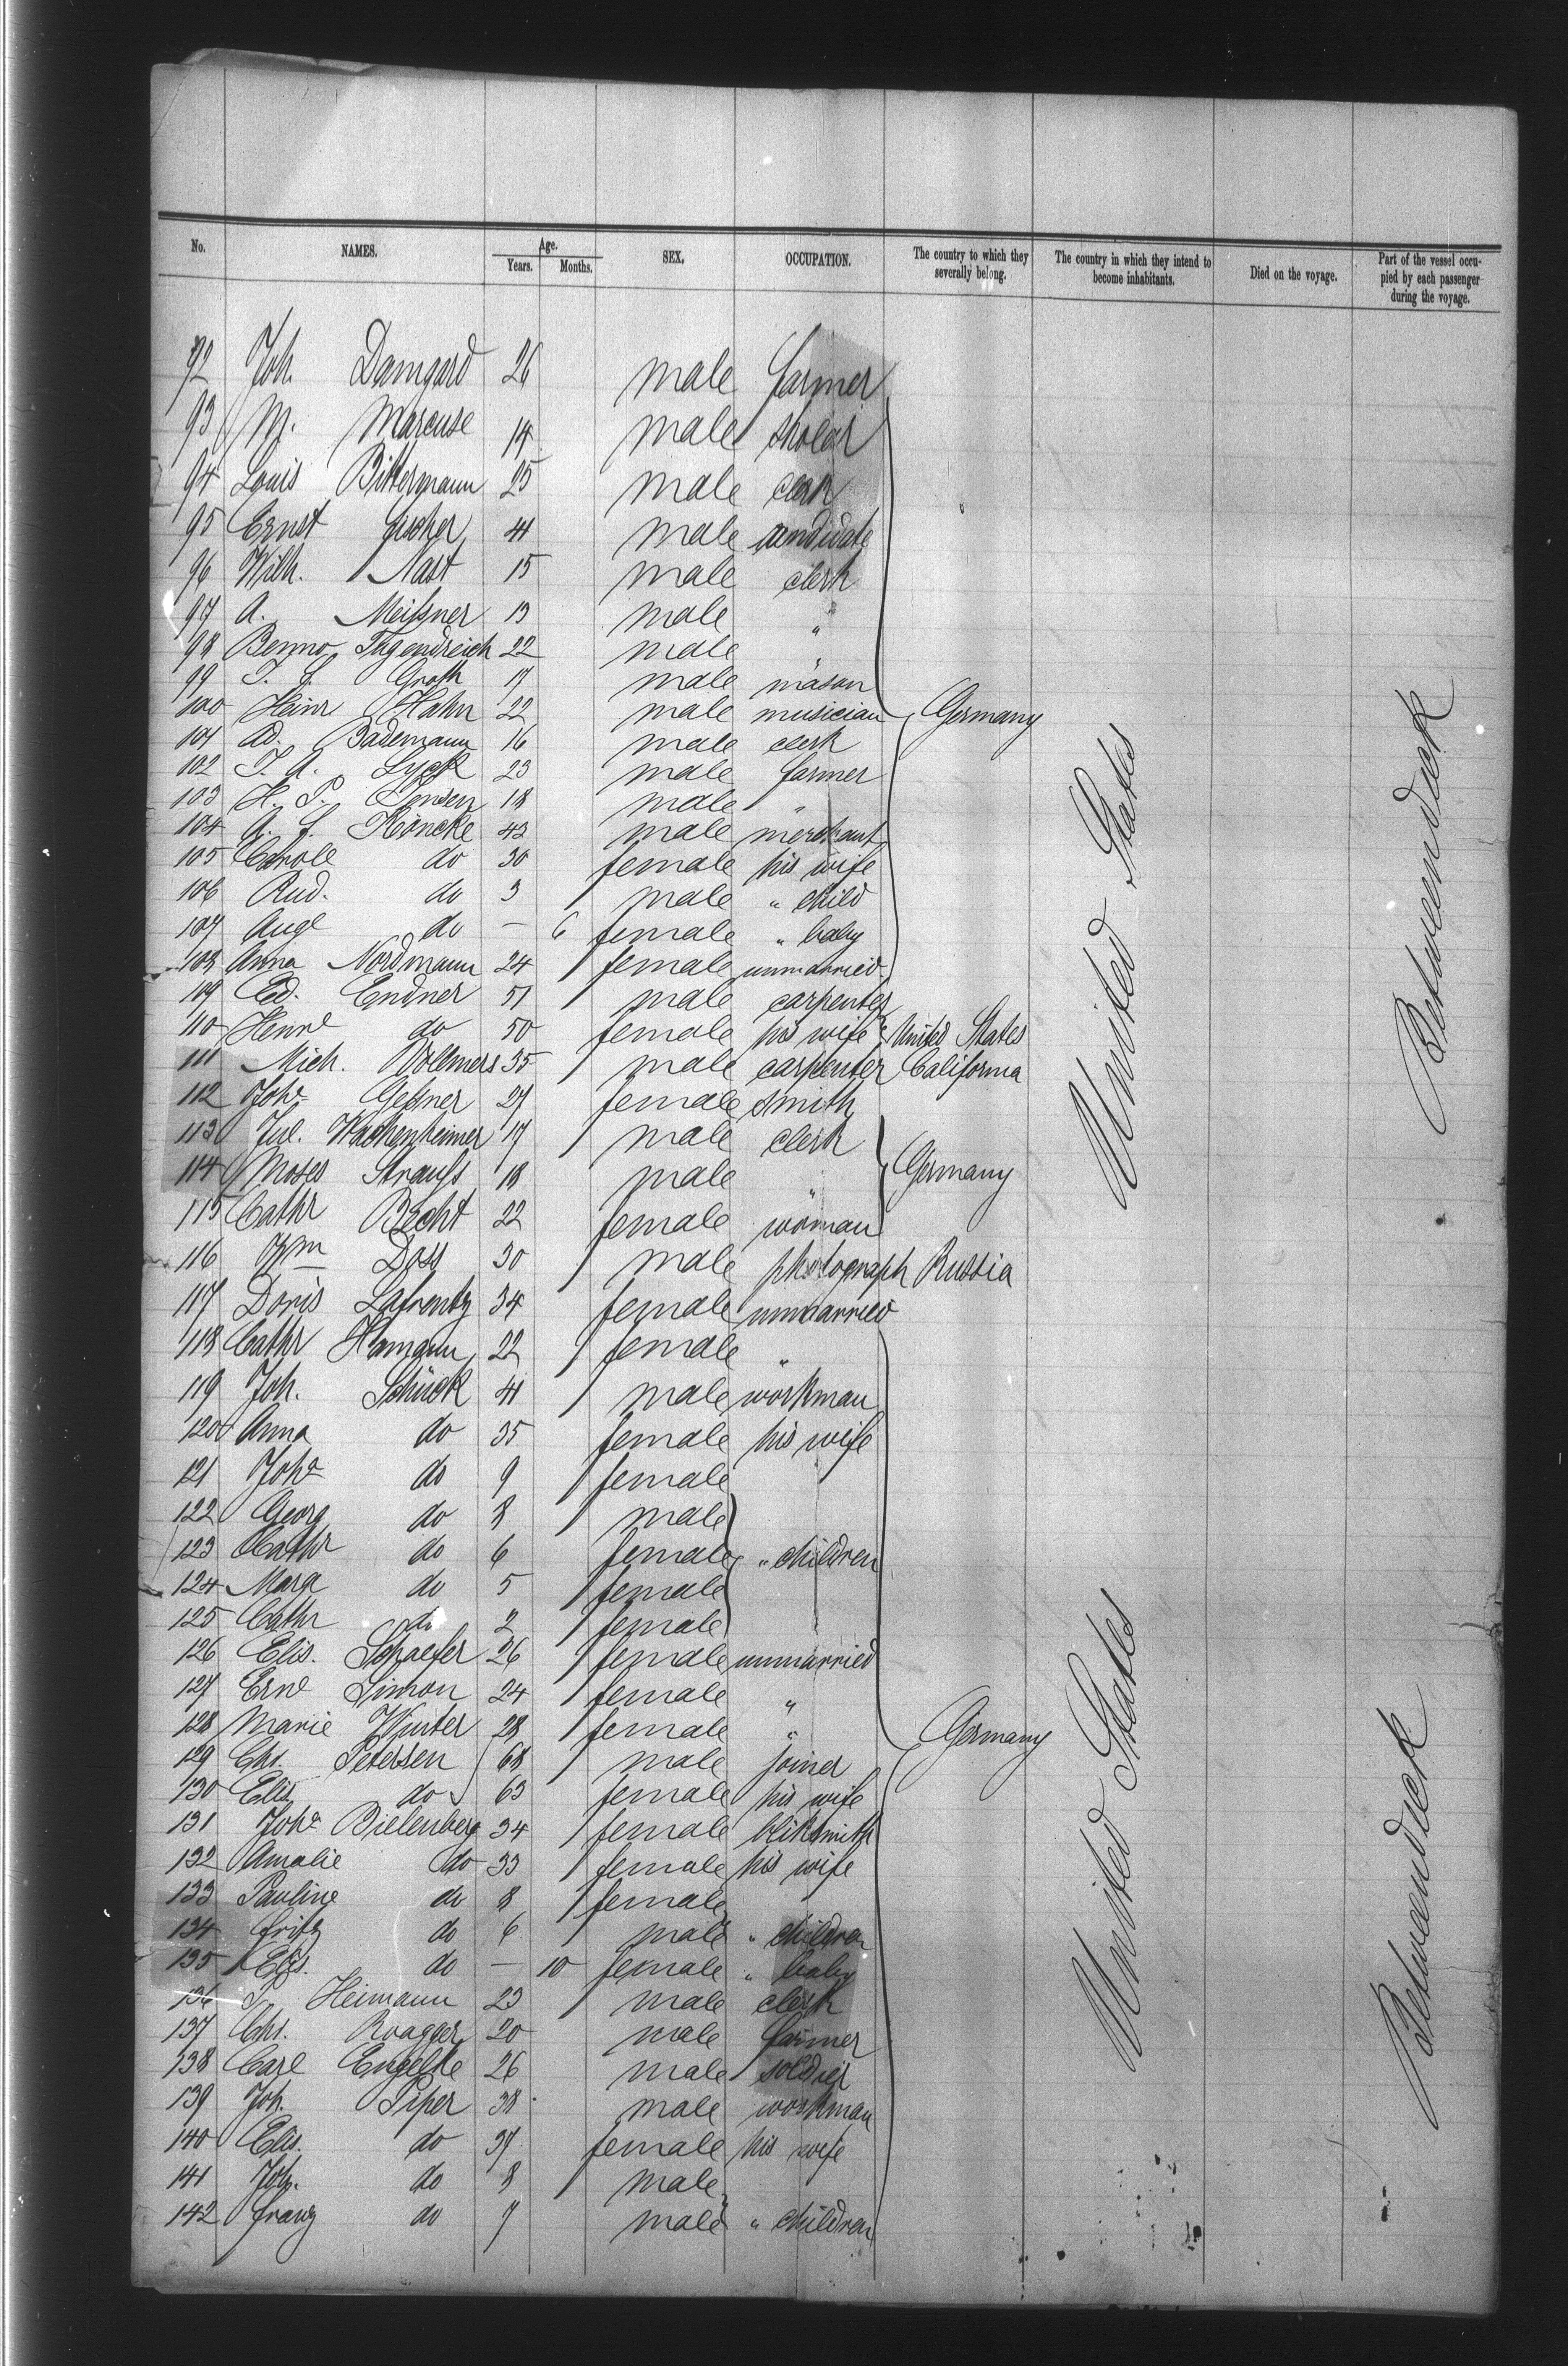 No. NAMES. Age. Years. Months. SEX. OCCUPATION. The country to which they severally belong. The country in which they intend to become inhabitants. Died on the voyage. Part of the vessel occupied by each passenger during the voyage.
92 Joh. Damgard 26 male farmer
93 M. Marcuse 14 male skolar
94 Louis Bittermann 25 male clerk
95 Ernst 41 male candidate
96 Wilh. Nast 15 male clerk
97 A. Meißner 19 male "
98 Benno Tugendreich 22 male "
99 Groth 17 male mason
100 Heinr Hahn 22 male musician Germany
101 Ad. Bademann 16 male clerk
102 J. A. Lyck 23 male farmer
103 H. P. Jensen 18 male "
104 A. f. Köncke 43 male merchant
105 Carole do 30 female his wife
106 Rud. do 3 male " child
107 Auge do — 6 female " baby
108 Anna Nordmann 24 female unmarried
109 Ed. Endner 51 male carpenter
110 Henre do 50 female his wife United States
111 Mich. Vollmers 35 male carpenter California
112 Joha Geßner 27 female smith
113 Jul. Wachenheimer 17 male clerk
114 Moses Strauß 18 male " Germany
115 Cathr Becht 22 female woman
116 Wm Doss 30 male photograph Russia
117 Doris Lafrentz 34 female unmarried
118 Cathr Hamann 22 female "
119 Joh. Schück 41 male workman
120 Anna do 35 female his wife
121 Joha do 9 female
122 Georg do 8 male
123 Cathr do 6 female " children
124 Marg do 5 female
125 Cathr do 2 female
126 Elis. Schaefer 26 female unmarried
127 Erne Simon 24 female "
128 Marie Winter 28 female " Germany
129 Chr. Petersen 68 male joiner
130 Elis do 63 female his wife
131 Joha Bielenberg 34 female bliksmith
132 Amalie do 33 female his wife
133 Pauline do 8 female
134 Fritz do 6 male " children
135 Elis. do — 10 female " baby
136 Heimann 23 male clerk
137 Chr. Roagger 20 male farmer
138 Carl Engelke 26 male soldier
139 Joh. Piper 38 male workman
140 Elis. do 37 female his wife
141 Joh. do 8 male
142 Franz do 7 male " children
United States
United States
Betweendeck
Betweendeck